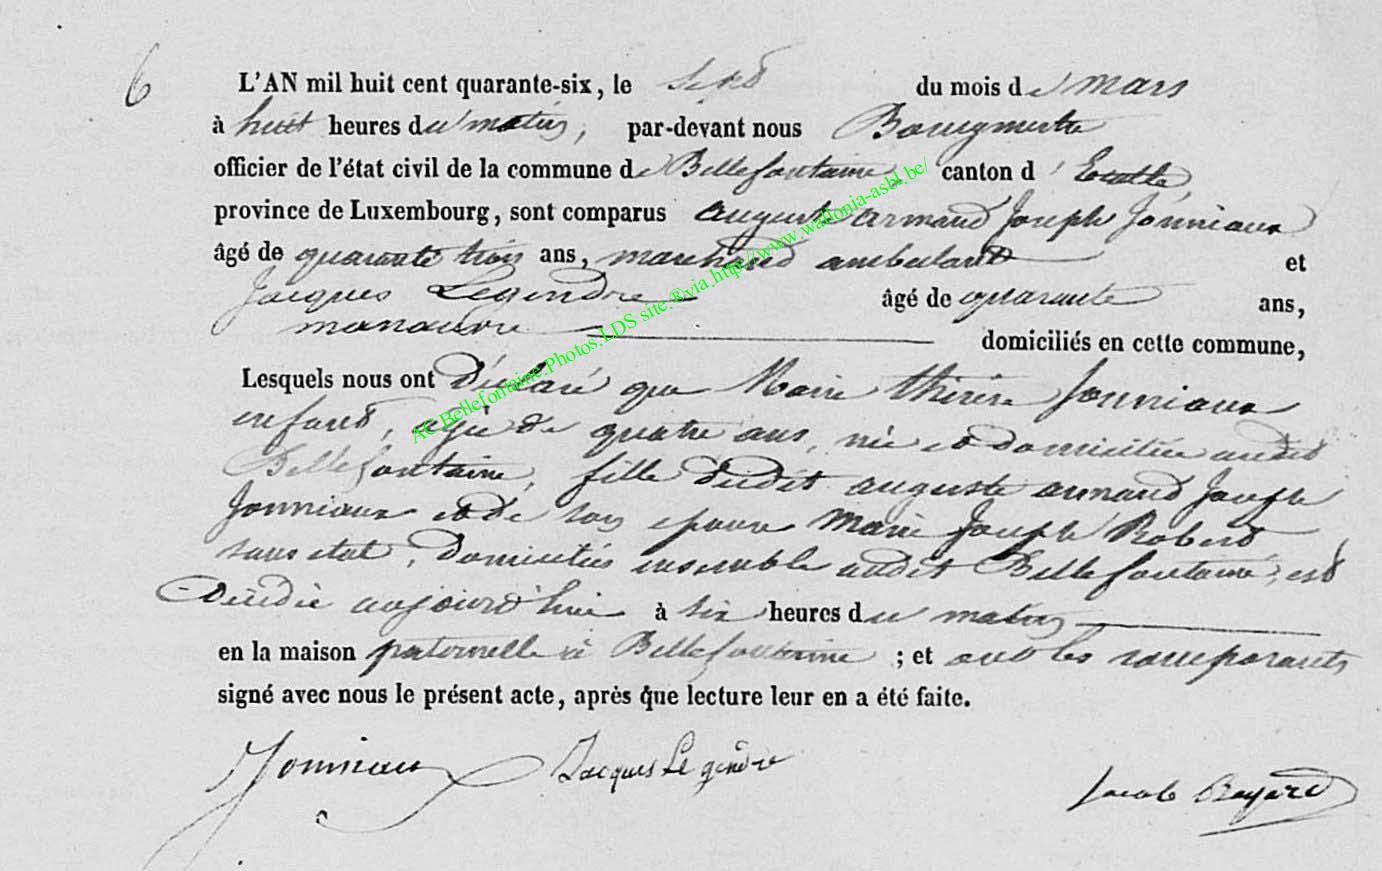 6
L'AN mil huit cent quarante-six, le sept du mois de mars
à huit heures du matin, par-devant nous Bourgmestre
officier de l'état civil de la commune de Bellefontaine canton d'Etalle,
province de Luxembourg, sont comparus auguste armand Joseph Jonniaux
âgé de quarante trois ans, marchand ambulant et
Jacques Legendre âgé de quarante ans,
manœuvre domiciliés en cette commune,
Lesquels nous ont déclaré que Marie thérèse Jonniaux
enfant, agée de quatre ans, née et domiciliée audit
Bellefontaine, fille dudit auguste armand Joseph
Jonniaux et de son epouse Marie Joseph Robert
sans etat, domiciliés ensemble audit Bellefontaine, est
décédée aujourd'hui à six heures du matin
en la maison paternelle à Bellefontaine ; et ont les comparants
signé avec nous le présent acte, après que lecture leur en a été faite.
Jonniaux Jacques Legendre
Jacob Bayard
AC.Bellefontaine.Photos.LDS site.®via.http://www.wallonia-asbl.be/